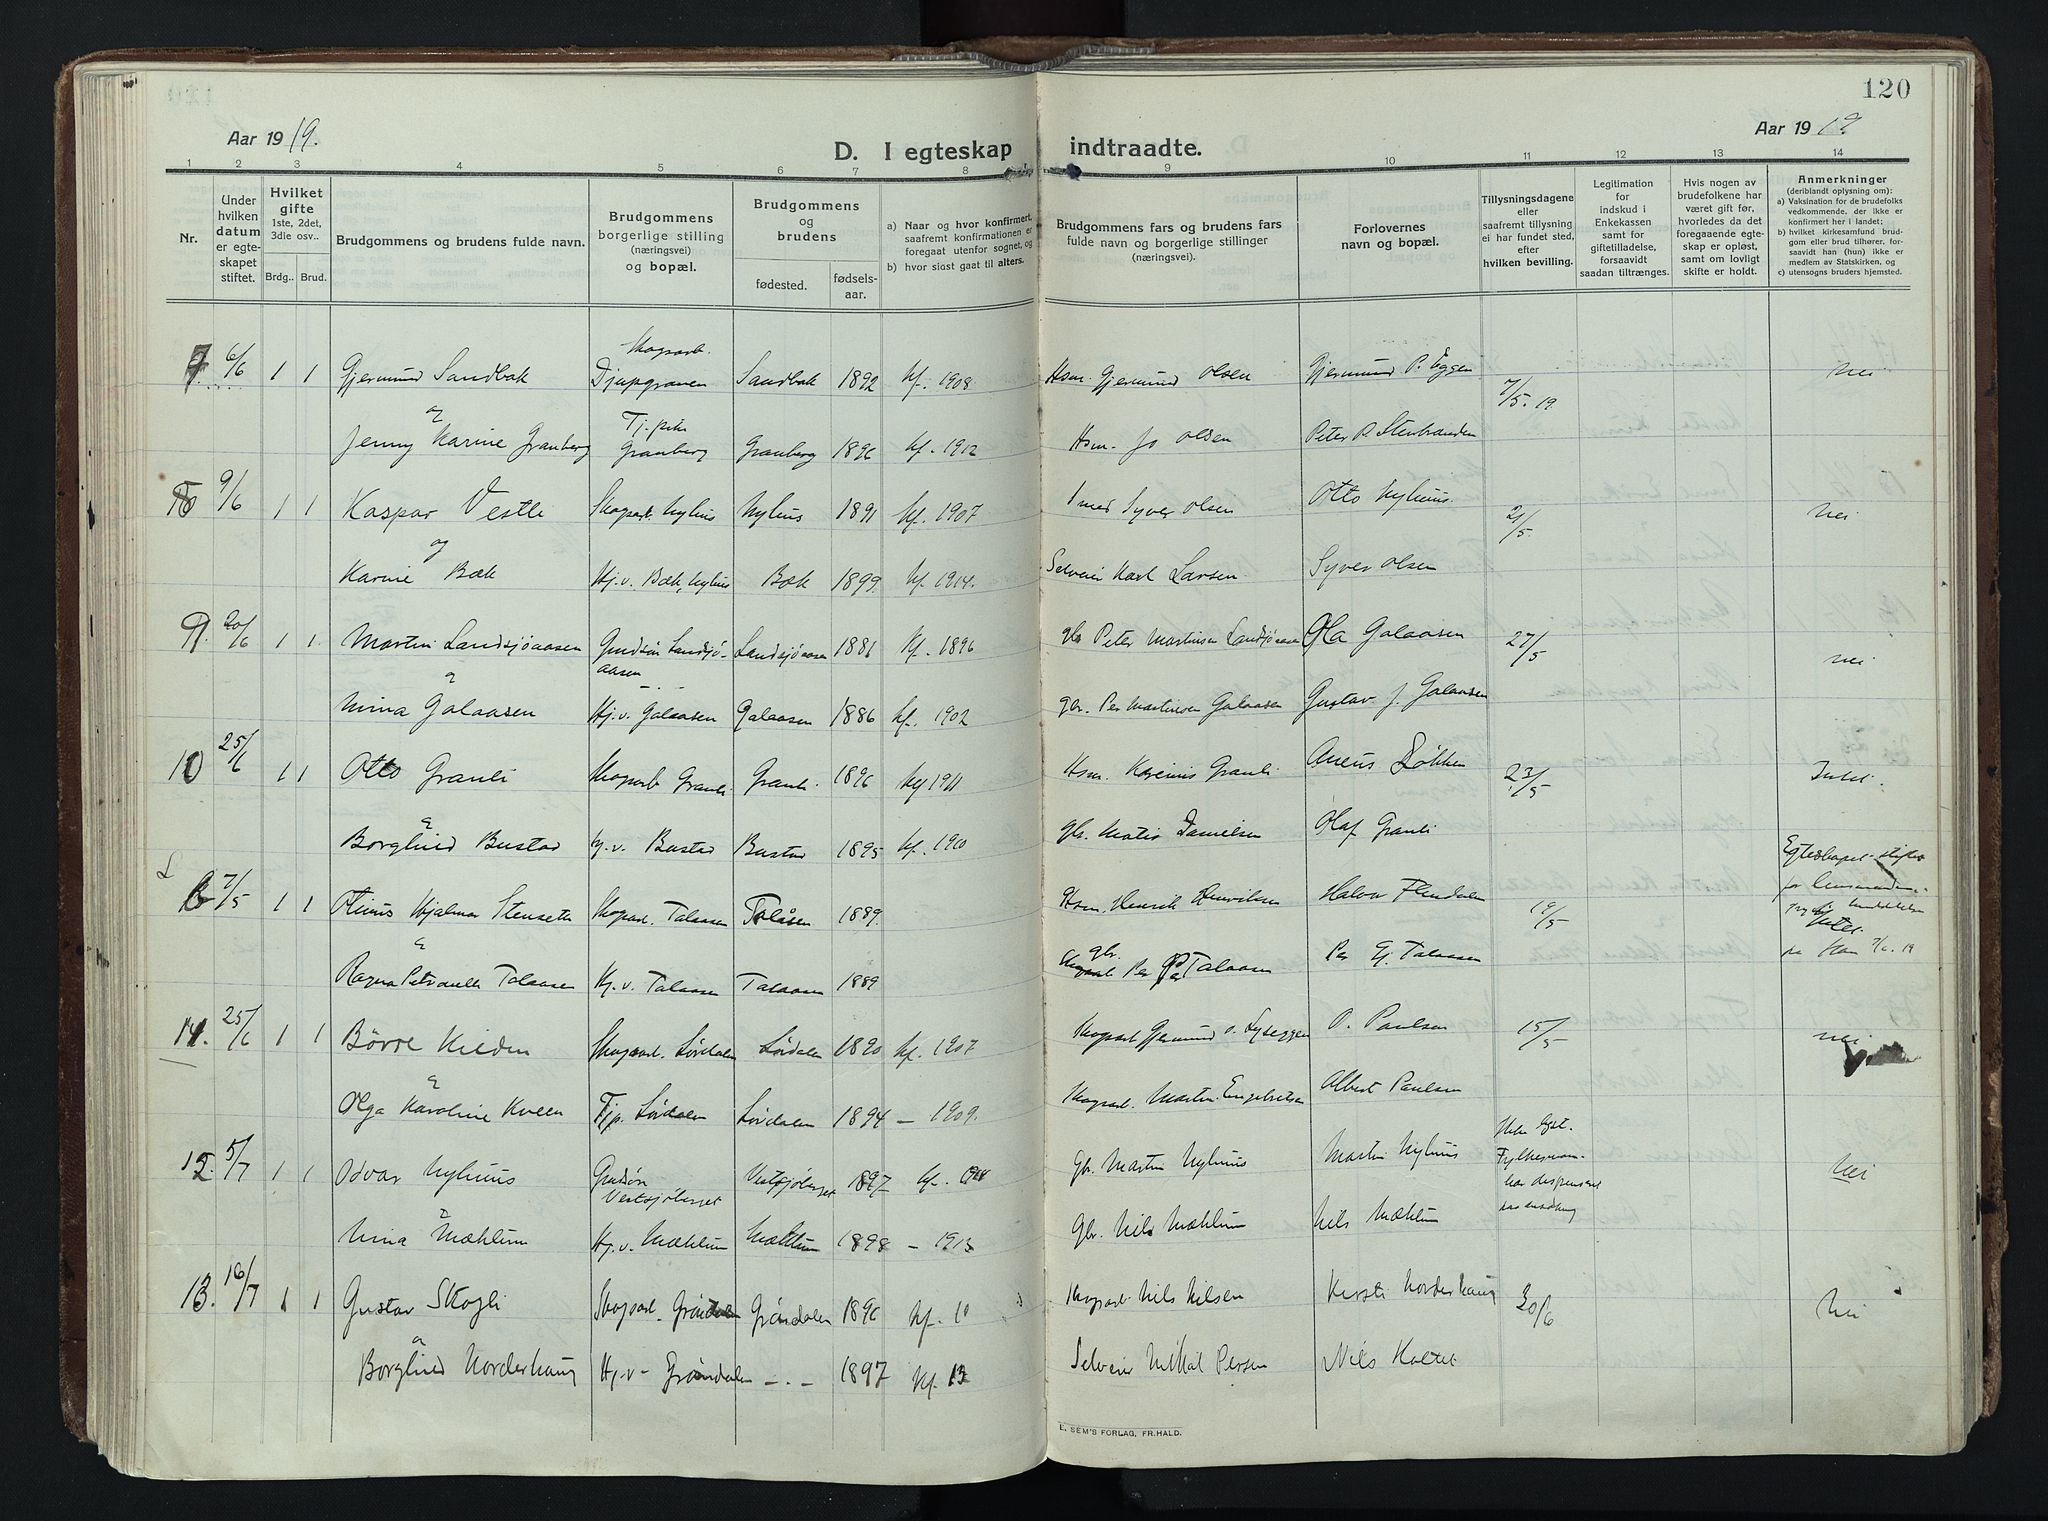 120
Aar 1919.
Aar 1919
D. I egteskap indtraadte.
1 2 3 4 5 6 7 8 9 10 11 12 13 14
Nr.
Under hvilken datum er egte-skapet stiftet.
Hvilket gifte 1ste, 2det, 3die osv..
Brdg.. Brud.
Brudgommens og brudens fulde navn.
Brudgommens borgerlige stilling (næringsvei) og bopæl.
Brudgommens og brudens
fødested. fødsels-aar.
a) Naar og hvor konfirmert, saafremt konfirmationen er foregaat utenfor sognet, og
b) hvor sidst gaat til alters.
Brudgommens fars og brudens fars fulde navn og borgerlige stillinger (næringsvei).
Forlovernes navn og bopæl.
Tillysningsdagene eller saafremt tillysning ei har fundet sted, efter hvilken bevilling.
Legitimation for indskud i Enkekassen samt for giftetilladelse, forsaavidt saadan tiltrænges.
Hvis nogen av brudefolkene har været gift før, hvorledes da det foregaaende egte-skap er opløst, samt om lovligt skifte er holdt.
Anmerkninger (deriblandt oplysning om):
a) Vaksination for de brudefolks vedkommende, der ikke er konfirmert her i landet;
b) hvilket kirkesamfund brud-gom eller brud tilhører, for-saavidt han (hun) ikke er medlem av Statskirken, og
c) utensogns bruders hjemsted.
7. 6/6 1 1 Gjermund Sandbak Skogsarb. Djupgraven Sandbak 1892 kf. 1908 Hsm. Gjermund Olsen Gjermund P. Eggen 7/5. 19 nei
og
Jenny Karine Granberg Tj.pike Granberg Granberg 1896 kf. 1912 Hsm. Jo Olsen Peter P. Stenbranden
9/6 1 1 Kaspar Vestli Skogsarb. Nyhus Nyhus 1891 kf. 1907 Smed Syver Olsen Otto Nyhuus 21/5. nei
og
Karine Bæk Hj.v. Bæk, Nyhus Bæk 1899 kf. 1914. Selveier Karl Larsen Syver Olsen
9. 20/6 1 1. Martin Landsjøaasen Grudsøn Landsjø-aasen Landsjøaasen 1881 kf. 1896 gbr Peter Martinsen Landsjøaasen Ola Galaasen 27/5 nei
Mina Galaasen Hj.v. Galaasen Galaasen 1886 kf. 1902 gbr. Per Martinsen Galaasen Gustav J. Galaasen
10 25/6 1 1 Otto Granli Skogsarb Granli Granli 1896 kf 1911 Hsm. Granli Løkken 23/5 Intet.
Borglind Bustad Hj.v. Bustad Bustad 1895 kf. 1910 gbr. Danielsen Olaf Granli
7/5 1 1 Hjalmar Stenseth Skogsarb. Talaasen Talåsen 1889. Hsm. Henrik Henriksen Halvor Flendalen 19/5 Egteskapet stiftes for lensmanden
Ragna Petronelle Talaasen Hj.v. Talaasen Talaasen 1889 gbr. Per Talaasen Per E. Talaasen
11. 25/6 1 1 Børre Kilden Skogsarb. Lørdalen Lørdalen 1890 kf. 1907 Skogsarb Gjermund O. Lyseggen O. Paulsen 15/5 nei
Olga Karoline Kveen Tjp. Lørdalen Lørdalen 1894 – 1909. Skogsarb. Martin Engebretsen Albert Paulsen
12. 5/7 1 1 Odvar Nyhuus Grudsøn Vestsjøberget Vestsjøberget 1897 kf. Gbr. Martin Nyhuus Martin Nyhuus Fylkesman har dispensert nei
Nina Mæhlum Hj.v. Mæhlum Mæhlum 1898 – 1913 Gbr. Nils Mæhlum Nils Mæhlum
13. 16/7 1 1 Gustav Skogli Skogsarb. Grøndalen Grøndalen 1896 kf. 10 Skogsarb Nils Nilsen Kersti Norderhaug 30/6 Nei
Borglind Norderhaug Hj.v. Grøndalen – . – 1897 kf. 13 Selveier Mikal Persen Nils Koltet
E. SEM'S FORLAG, FR.HALD.